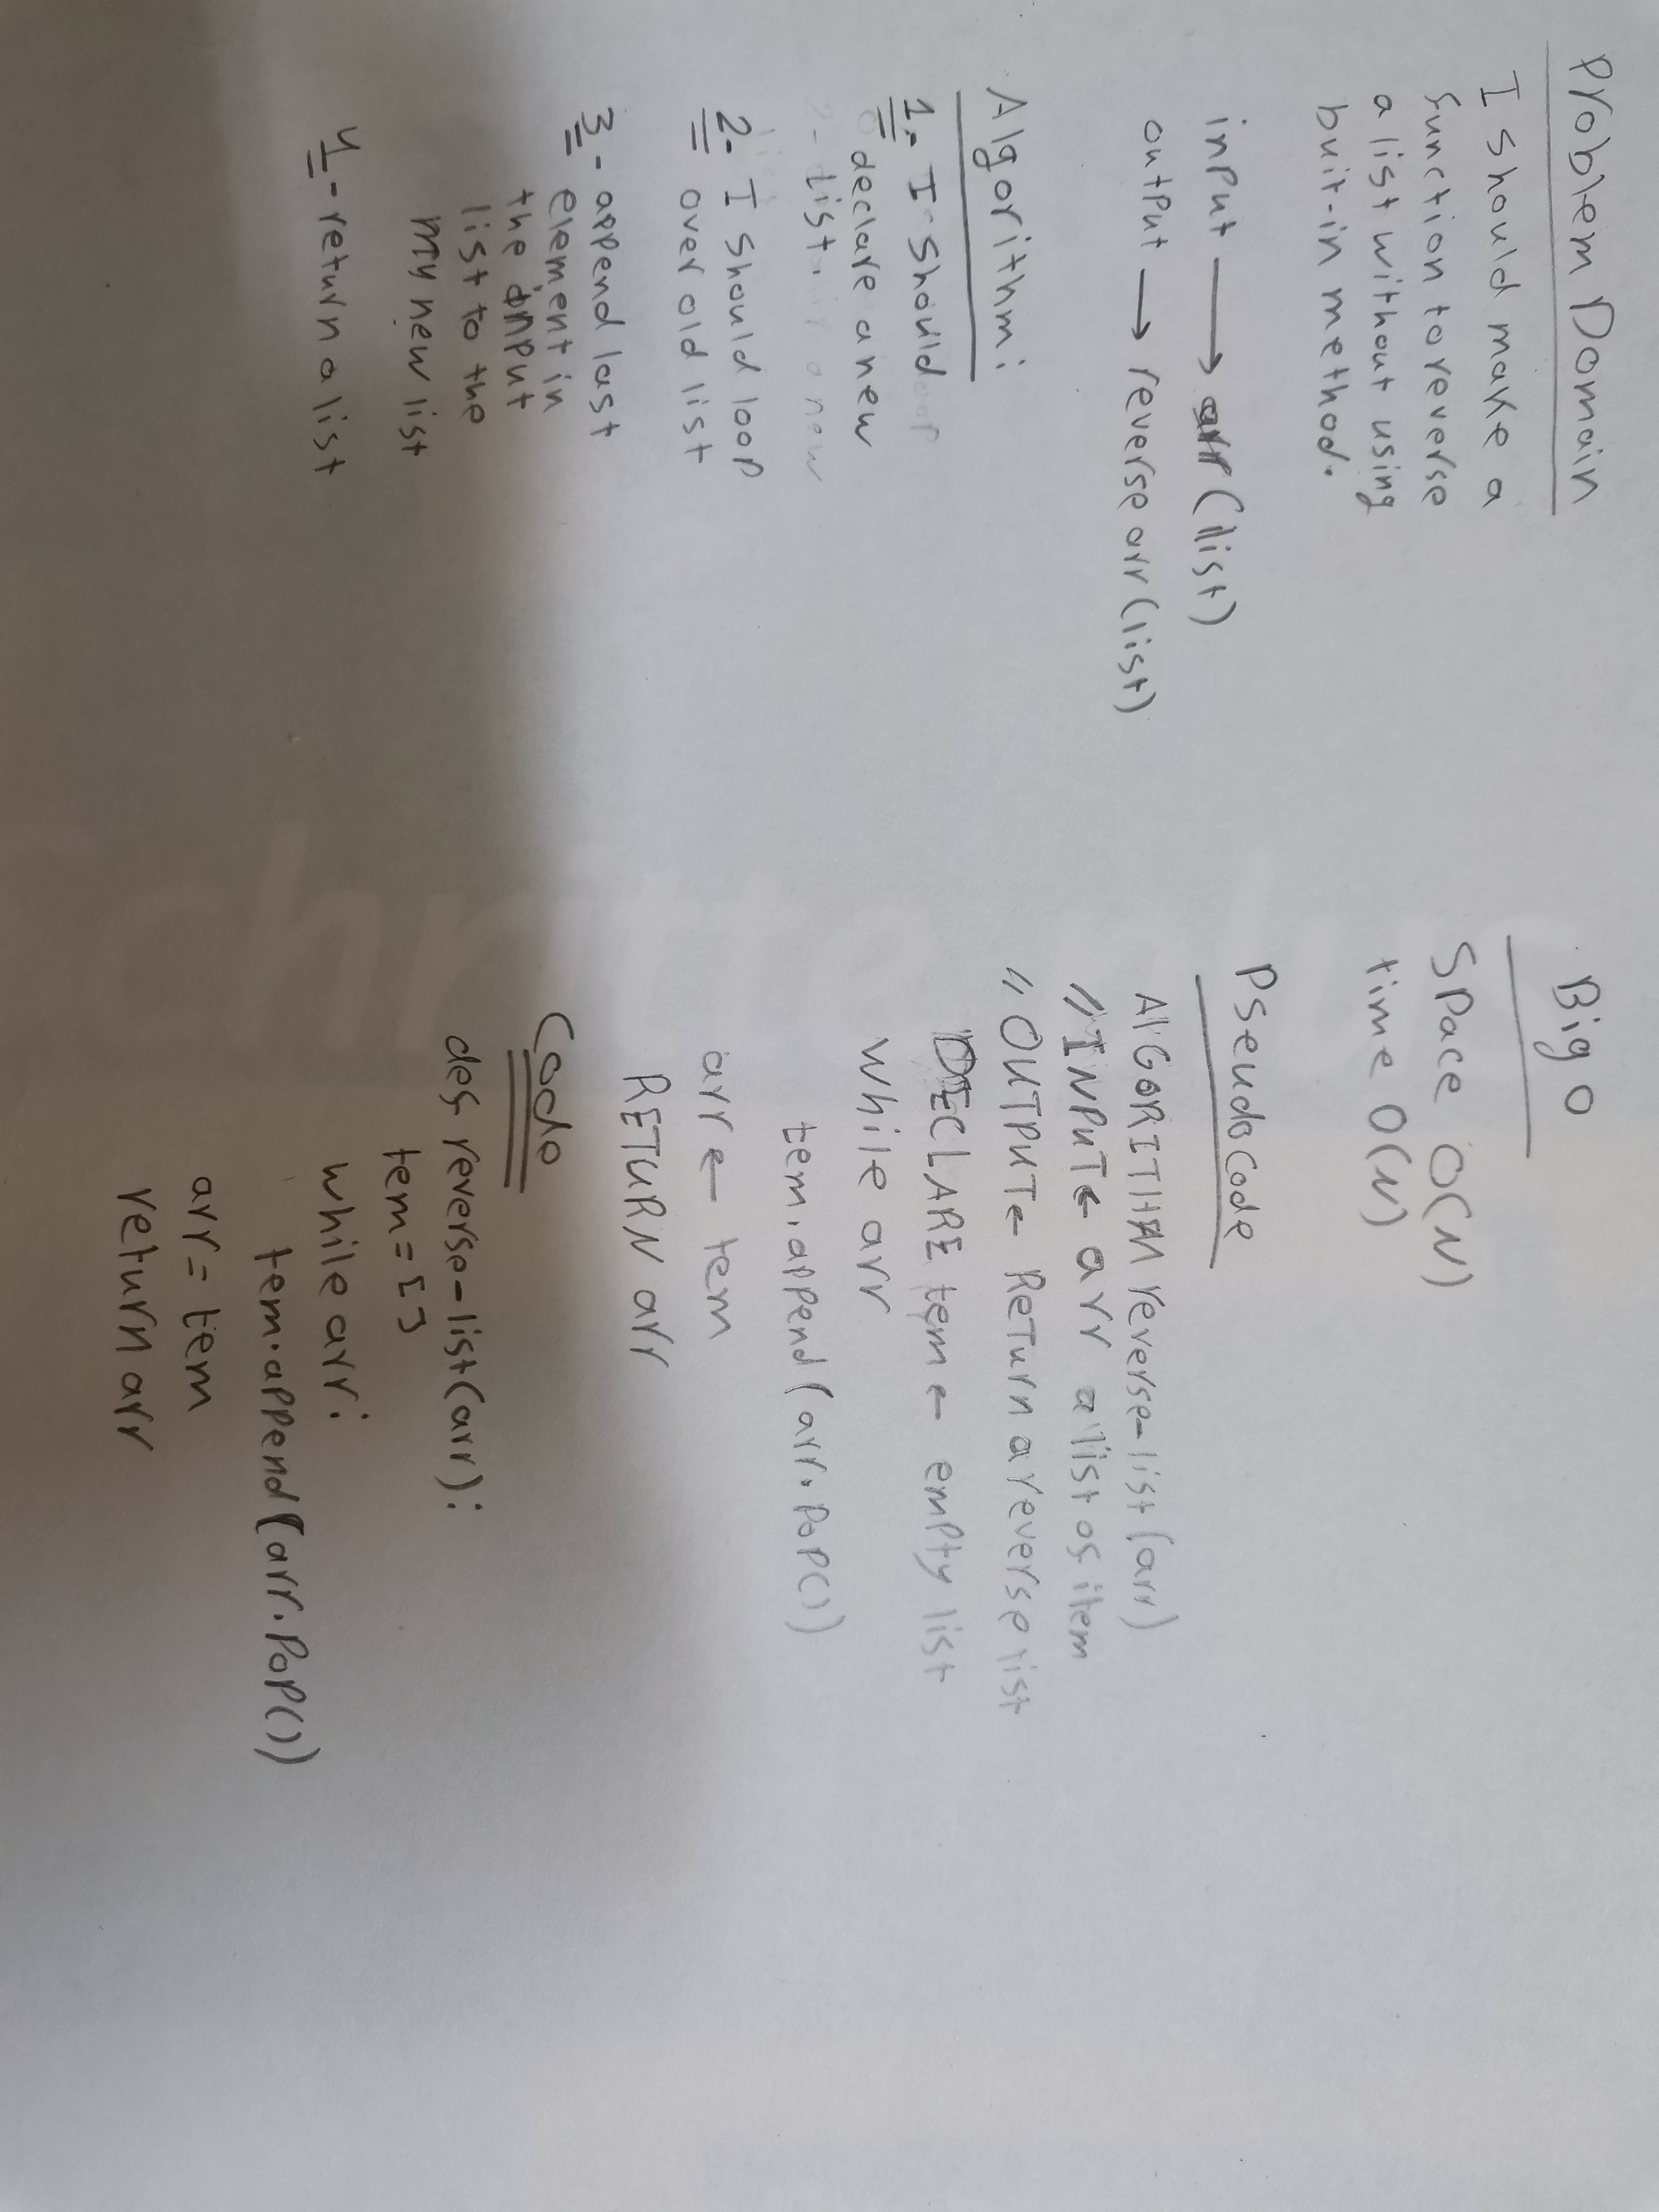 Problem Domain
I should make a
function to reverse
a list without using
buit-in method.
input → arr (list)
output → reverse arr (list)
Algorithm:
1- I should
declare a new
list.
2- I should loop
over old list
3- append last
element in
the input
list to the
my new list
4- return a list
Big O
Space O(N)
time O(N)
Pseudo Code
AlGORITHM reverse-list (arr)
// INPUT ← arr a list of item
// OUTPUT ← Return a reverse list
DECLARE tem ← empty list
while arr
tem.append (arr.pop())
arr ← tem
RETURN arr
Code
def reverse-list (arr):
tem = []
while arr:
tem.append (arr.pop())
arr = tem
return arr